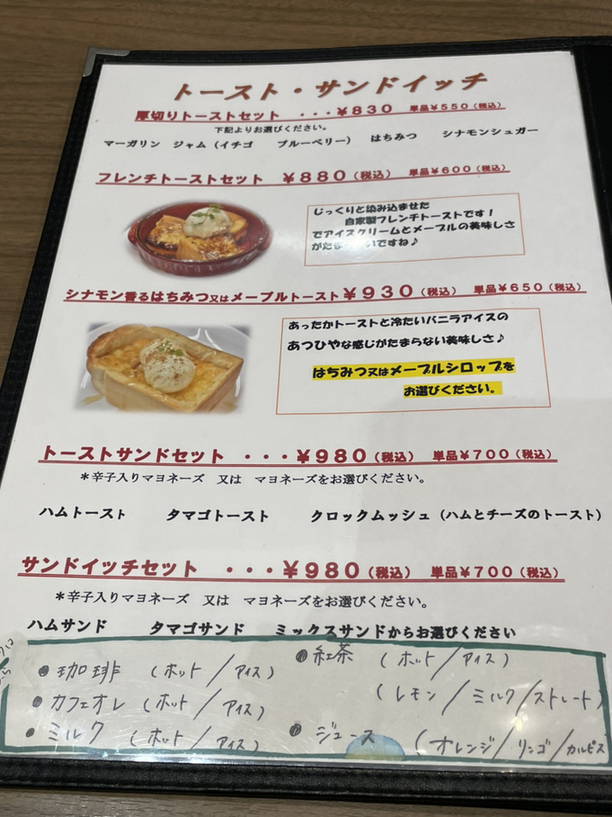 トースト・サンドイッチ
厚切りトーストセット ・・・￥830 単品￥550(税込)
下記よりお選びください。
マーガリン ジャム(イチゴ ブルーベリー) はちみつ シナモンシュガー
フレンチトーストセット ￥880(税込) 単品￥600(税込)
じっくりと染み込ませた
自家製フレンチトーストです！
でアイスクリームとメープルの美味しさ
がた いですね♪
シナモン香るはちみつ又はメープルトースト￥930(税込) 単品￥650(税込)
あったかトーストと冷たいバニラアイスの
あつひやな感じがたまらない美味しさ♪
はちみつ又はメープルシロップを
お選びください。
トーストサンドセット ・・・￥980(税込) 単品￥700(税込)
＊辛子入りマヨネーズ 又は マヨネーズをお選びください。
ハムトースト タマゴトースト クロックムッシュ(ハムとチーズのトースト)
サンドイッチセット ・・・￥980(税込) 単品￥700(税込)
＊辛子入りマヨネーズ 又は マヨネーズをお選びください。
ハムサンド タマゴサンド ミックスサンドからお選びください
●珈琲 (ホット/アイス)
●カフェオレ (ホット/アイス)
●ミルク (ホット/アイス)
●紅茶 (ホット/アイス)
(レモン/ミルク/ストレート)
●ジュース (オレンジ/リンゴ/カルピス